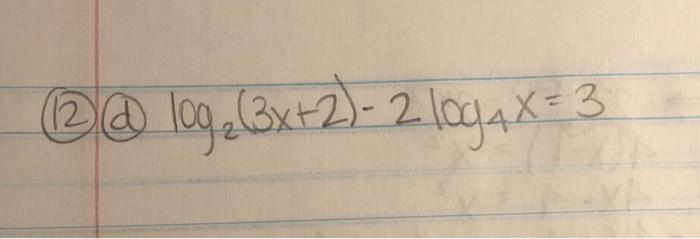 ⑫ ⓓ log₂(3x+2) - 2 log₄x = 3